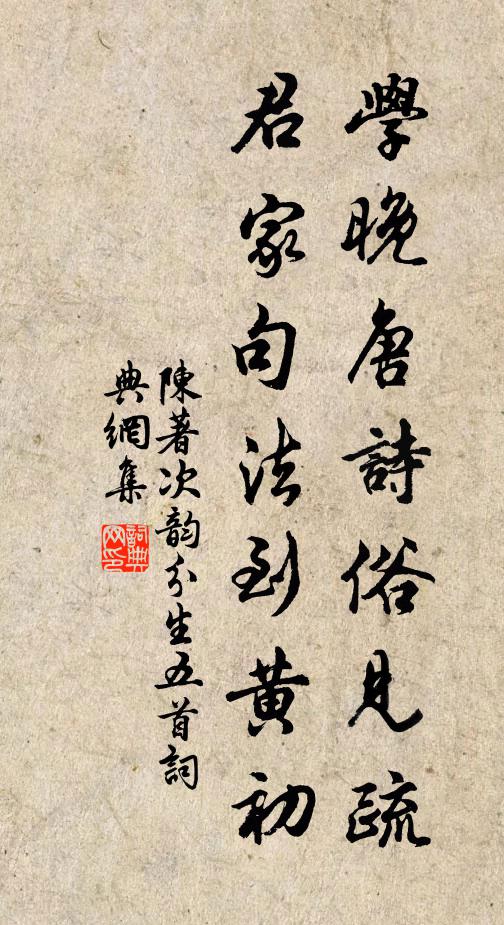 學晚唐詩俗見疏
君家句法到黃初
陳著次韵分生五首詞
典網集
詞典
网印